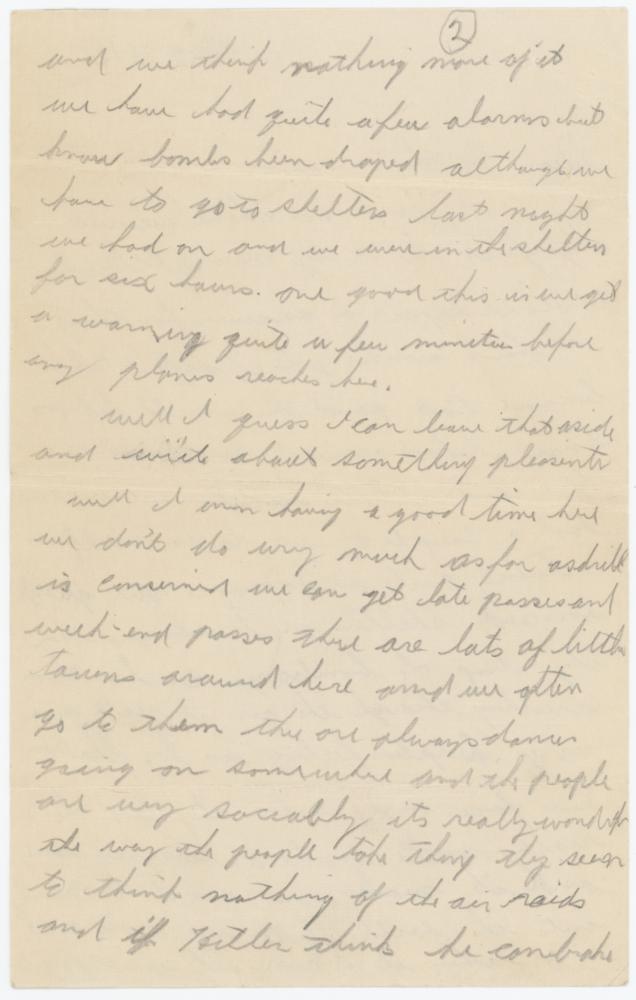 2
and we think nothing more of it
we have had quite a few alarms but
know bombs been droped although we
have to go to shelters last night
we had on and we were in the shelters
for six hours. one good this is we get
a warning quite a few minutes before
any planes reaches here.
well I guess I can leave that aside
and write about something pleasent
well I am having a good time here
we don't do very much as far as drill
is concerned we can get late passes and
week-end passes there are lots of little
taverns around here and we often
go to them the are always dances
going on somewhere and the people
are very sociably its really wonderful
the way the people take thing they seem
to think nothing of the air raids
and if Hitler thinks he can brake